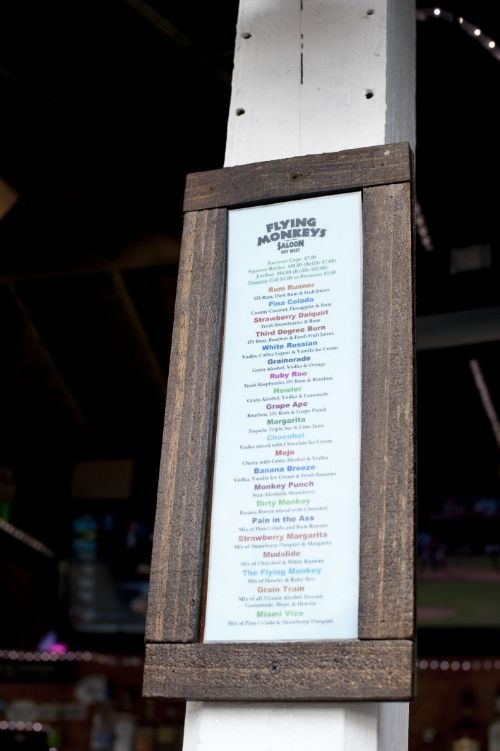 FLYING
MONKEYS
SALOON
KEY WEST
Souvenir Cups $7.00
Rum Runner
151 Rum, Dark Rum & Fruit Juices
Pina Colada
Creamy Coconut, Pineapples & Rum
Strawberry Daiquiri
Fresh Strawberries & Rum
Third Degree Burn
151 Rum, Bourbon & Fruit Juices
White Russian
Vodka, Coffee Liqueur & Vanilla Ice Cream
Grainorade
Grain Alcohol, Vodka & Orange
Ruby Roo
Fresh Raspberries 151 Rum & Bourbon
Howler
Grain Alcohol, Vodka & Lemonade
Grape Ape
Bourbon, 151 Rum & Grape Punch
Margarita
Tequila, Triple Sec & Lime Juice
Chocohol
Vodka mixed with Chocolate Ice Cream
Mojo
Cherry with Grain Alcohol & Vodka
Banana Breeze
Vodka, Vanilla Ice Cream & Fresh Bananas
Monkey Punch
Non-Alcoholic Strawberry
Dirty Monkey
Banana Breeze mixed with Chocohol
Pain in the Ass
Mix of Pina Colada and Rum Runner
Strawberry Margarita
Mix of Strawberry Daiquiri & Margarita
Mudslide
Mix of Chocohol & White Russian
The Flying Monkey
Mix of Howler & Ruby Roo
Grain Train
Mix of all 3 Grain Alcohol Flavors:
Grainorade, Mojo, & Howler
Miami Vice
Mix of Pina Colada & Strawberry Daiquiri